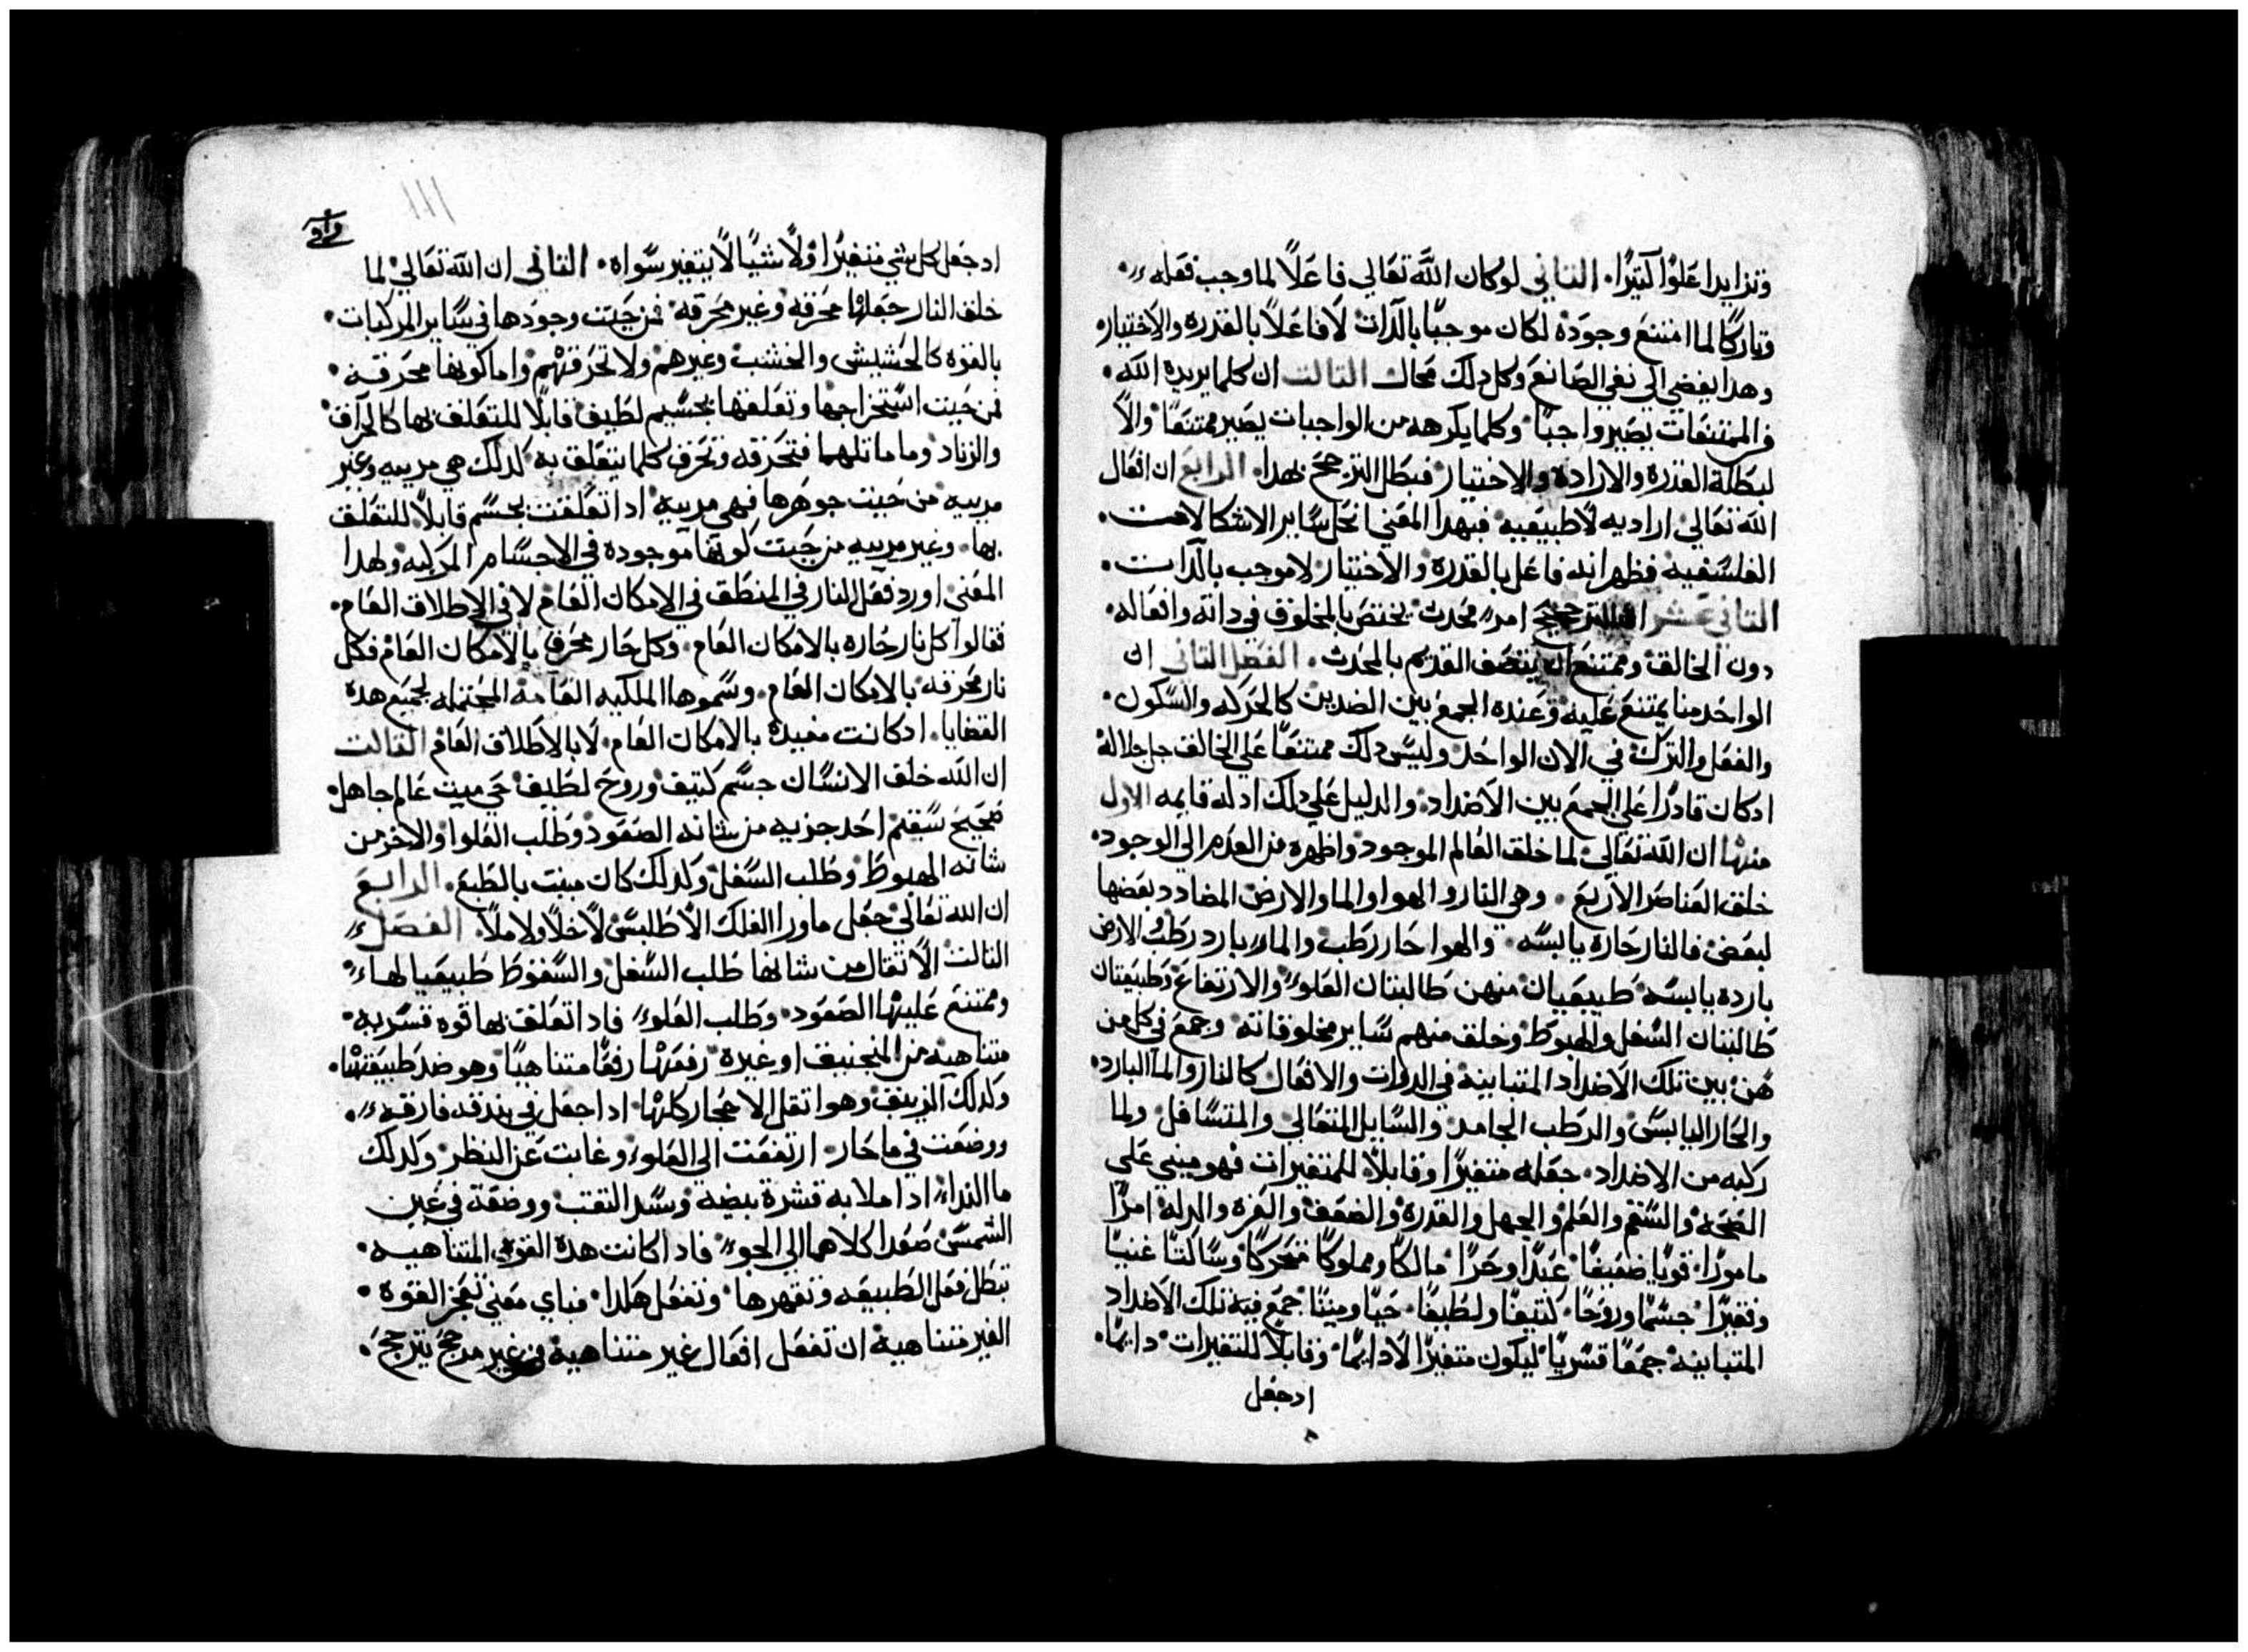 وتزايدا علوًا كتيرًا. التاني لوكان الله تعالي فاعلًا لما وجب فعله
وتاركًا لما امتنع وجوده لكان موجبًا بالدات لا فاعلًا بالقدره والاختيار
وهدا يفضي الي نفي الصانع وكل دلك محال التالت ان كلما يريده الله
من الممتنعات يصير واجبًا وكلما يكرهه من الواجبات يصير ممتنعًا والا
لبطلة القدره والاراده والاختيار فبطل الترجيح بهدا. الرابع ان افعال
الله تعالي اراديه لا طبيعيه فبهدا المعني انحل ساير الاشكالات
الفلسفيه فظهر انه فاعل بالقدره والاختيار لا موجب بالدات
التاني عشر الترجيح امر محدت يختص بالمخلوق في داته وافعاله
دون الخالق وممتنع ان يتصف القديم بالمحدت. الفصل التاني ان
الواحد منا يمتنع عليه وعنده الجمع بين الضدين كالحركه والسكون
والفعل والترك في الان الواحد وليس دلك ممتنعًا علي الخالق جل جلاله
ادكان قادرًا علي الجمع بين الاضداد والدليل علي دلك ادله قايمه الاول
منها ان الله تعالي لما خلق العالم الموجود واظهره من العدم الي الوجود
خلق العناصر الاربع. وهي النار والهوا والما والارض المضادد بعضها
لبعض فالنار حاره يابسه. والهوا حار رطب والما بارد رطب والارض
بارده يابسه طبيعيان منهن طالبتان العلو والارتفاع وطبيعتان
طالبتان السفل والهبوط وخلق منهم ساير مخلوقاته وجمع في كل من
هن بين تلك الاضداد المتباينه في الدوات والافعال كالنار والما البارد
والحار اليابس والرطب الجامد والسايل المتعالي والمتسافل ولما
ركبه من الاضداد جعله متغيرًا وقابلًا للمتغيرات فهو مبني علي
الصحه والسقم والعلم والجهل والقدره والضعف والعزه والدله امرًا
مامورًا قويًا ضعيفًا عبدًا وحرًا مالكًا ومملوكًا متحركًا وساكنًا غنيًا
وفقيرًا جسمًا وروحًا كتيفًا ولطيفًا حيًا وميتًا جمع فيه تلك الاضداد
المتباينه جمعًا قسريًا ليكون متغيرًا لا دايمًا وقابلًا للتغيرات دايمًا.
ادجعل
111
ادجعل كل شي متغيرًا ولا شيًا لا يتغير سواه. التاني ان الله تعالي لما
خلق النار جعلها محرقه وغير محرقه فمن حيت وجودها في ساير المركبات
بالقوه كالحشيش والخشب وغيرهم ولا تحرقهم واما كونها محرقه
فمن حيت استخراجها وتعلقها بجسم لطيف قابلًا للتعلق بها كالحراق
والزناد وما ماتلهما فتحرقه وتحرق كلما يتعلق به كدلك هي مرييه وغير
مرييه من حيت جوهرها فهي مرييه ادا تعلقت بجسم قابلًا للتعلق
بها. وغير مرييه من حيت كونها موجوده في الاجسام المركبه ولهدا
المعني اورد فعل النار في المنطق في الامكان العام لا في الاطلاق العام
فقالوا كل نار حاره بالامكان العام. وكل حار محرق بالامكان العام فكل
نار محرقه بالامكان العام. وسموها الملكيه العامه المحتمله لجميع هده
القضايا. ادكانت مفيده بالامكان العام. لا بالاطلاق العام التالت
ان الله خلق الانسان جسم كتيف وروح لطيف حي ميت عالم جاهل
صحيح سقيم احد جزييه من شانه الصعود وطلب العلوا والاخر من
شانه الهبوط وطلب السفل ولدلك كان ميت بالطبع. الرابع
ان الله تعالي جعل ماورا الفلك الاطلس لا خلًا ولا ملًا. الفصل
التالت الاتقال من شانها طلب السفل والسقوط طبيعيا لها
وممتنع عليها الصعود وطلب العلو فادا تعلق بها قوه قسريه
متناهيه من المنجنيق او غيره رفعتها رفعًا متناهيًا وهو ضد طبيعتها
وكدلك الزيبق وهو اتقل الاحجار كلها ادا جعل في بندقه فارقه
ووضعت في ما حار. ارتفعت الي العلو وغابت عن النظر وكدلك
ما الندا ادا ملا به قشرة بيضه وسد التقب ووضعه في عين
الشمس صعدا كلاهما الي الجو. فادا كانت هده القوي المتناهيه
تبطل فعل الطبيعه وتقهرها وتفعل هكدا فباي معني تعجز القوه
الغير متناهيه ان تفعل افعال غير متناهيه من غير مرجح يترجح